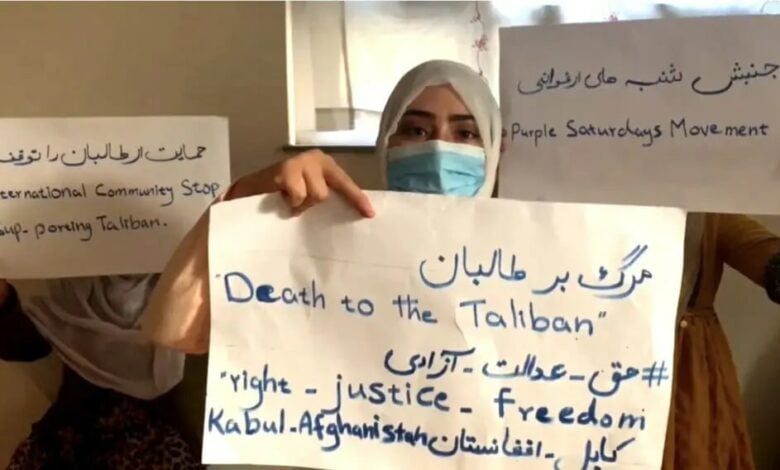 حمایت از طالبان را توقف
ternational Community Stop
sup- porting Taliban.
جنبش شنبه های ارغوانی
Purple Saturdays Movement
مرگ بر طالبان
"Death to the Taliban"
#حق-عدالت-آزادی
"right - justice - freedom
Kabul-Afghanistan کابل-افغانستان